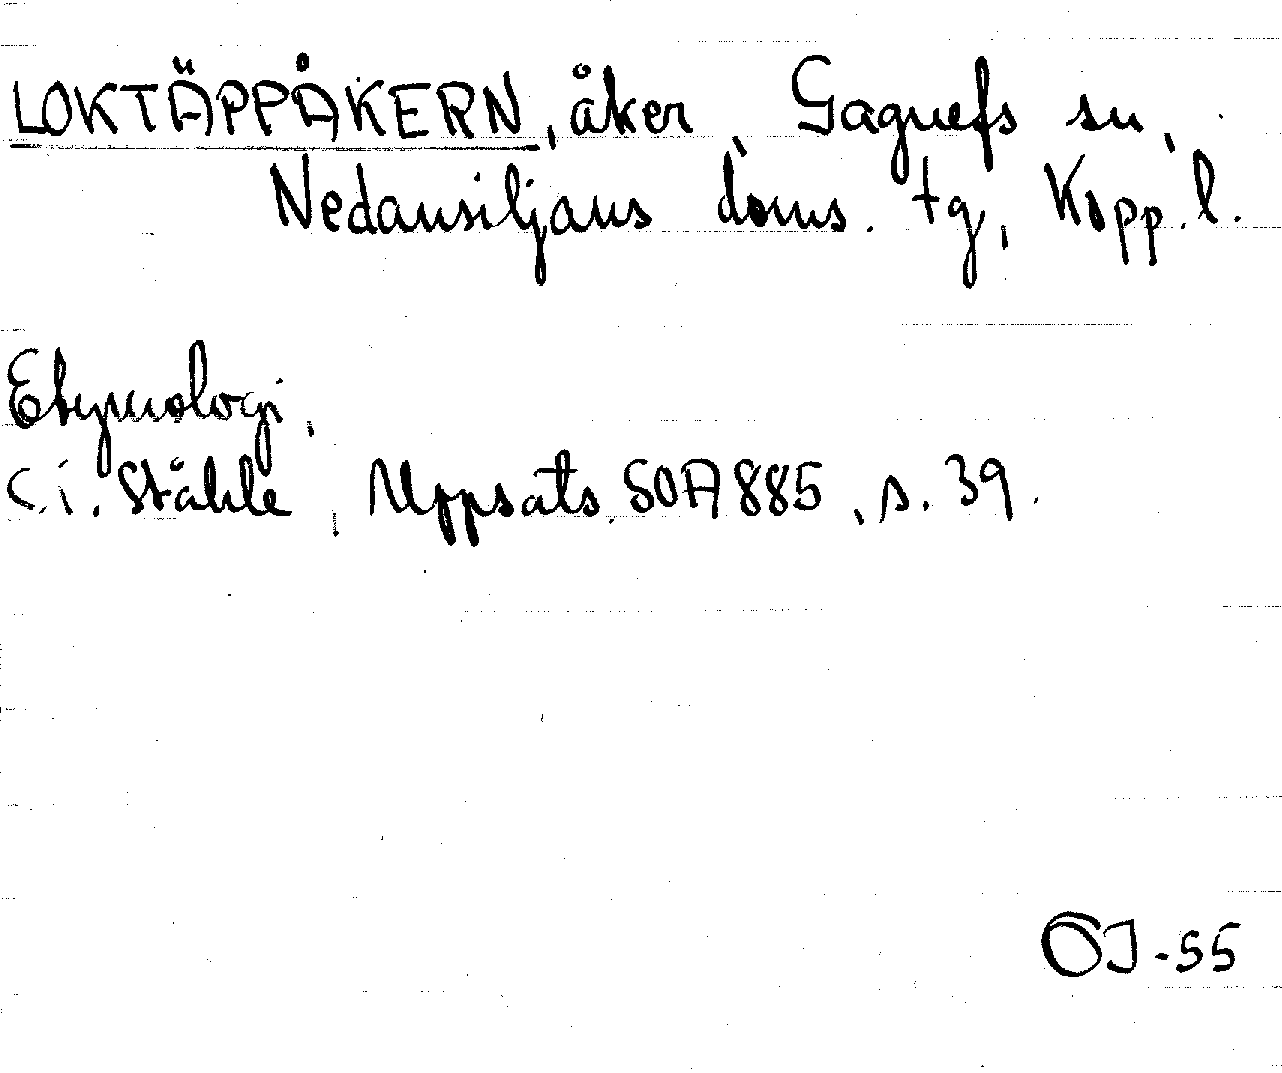 LOKTÄPPÅKERN, åker, Gagnefs sn,
Nedansiljans doms. tg, Kopp. l.
Etymologi,
C.I. Ståhle, Uppsats SOA 885, s. 39.
OJ-55